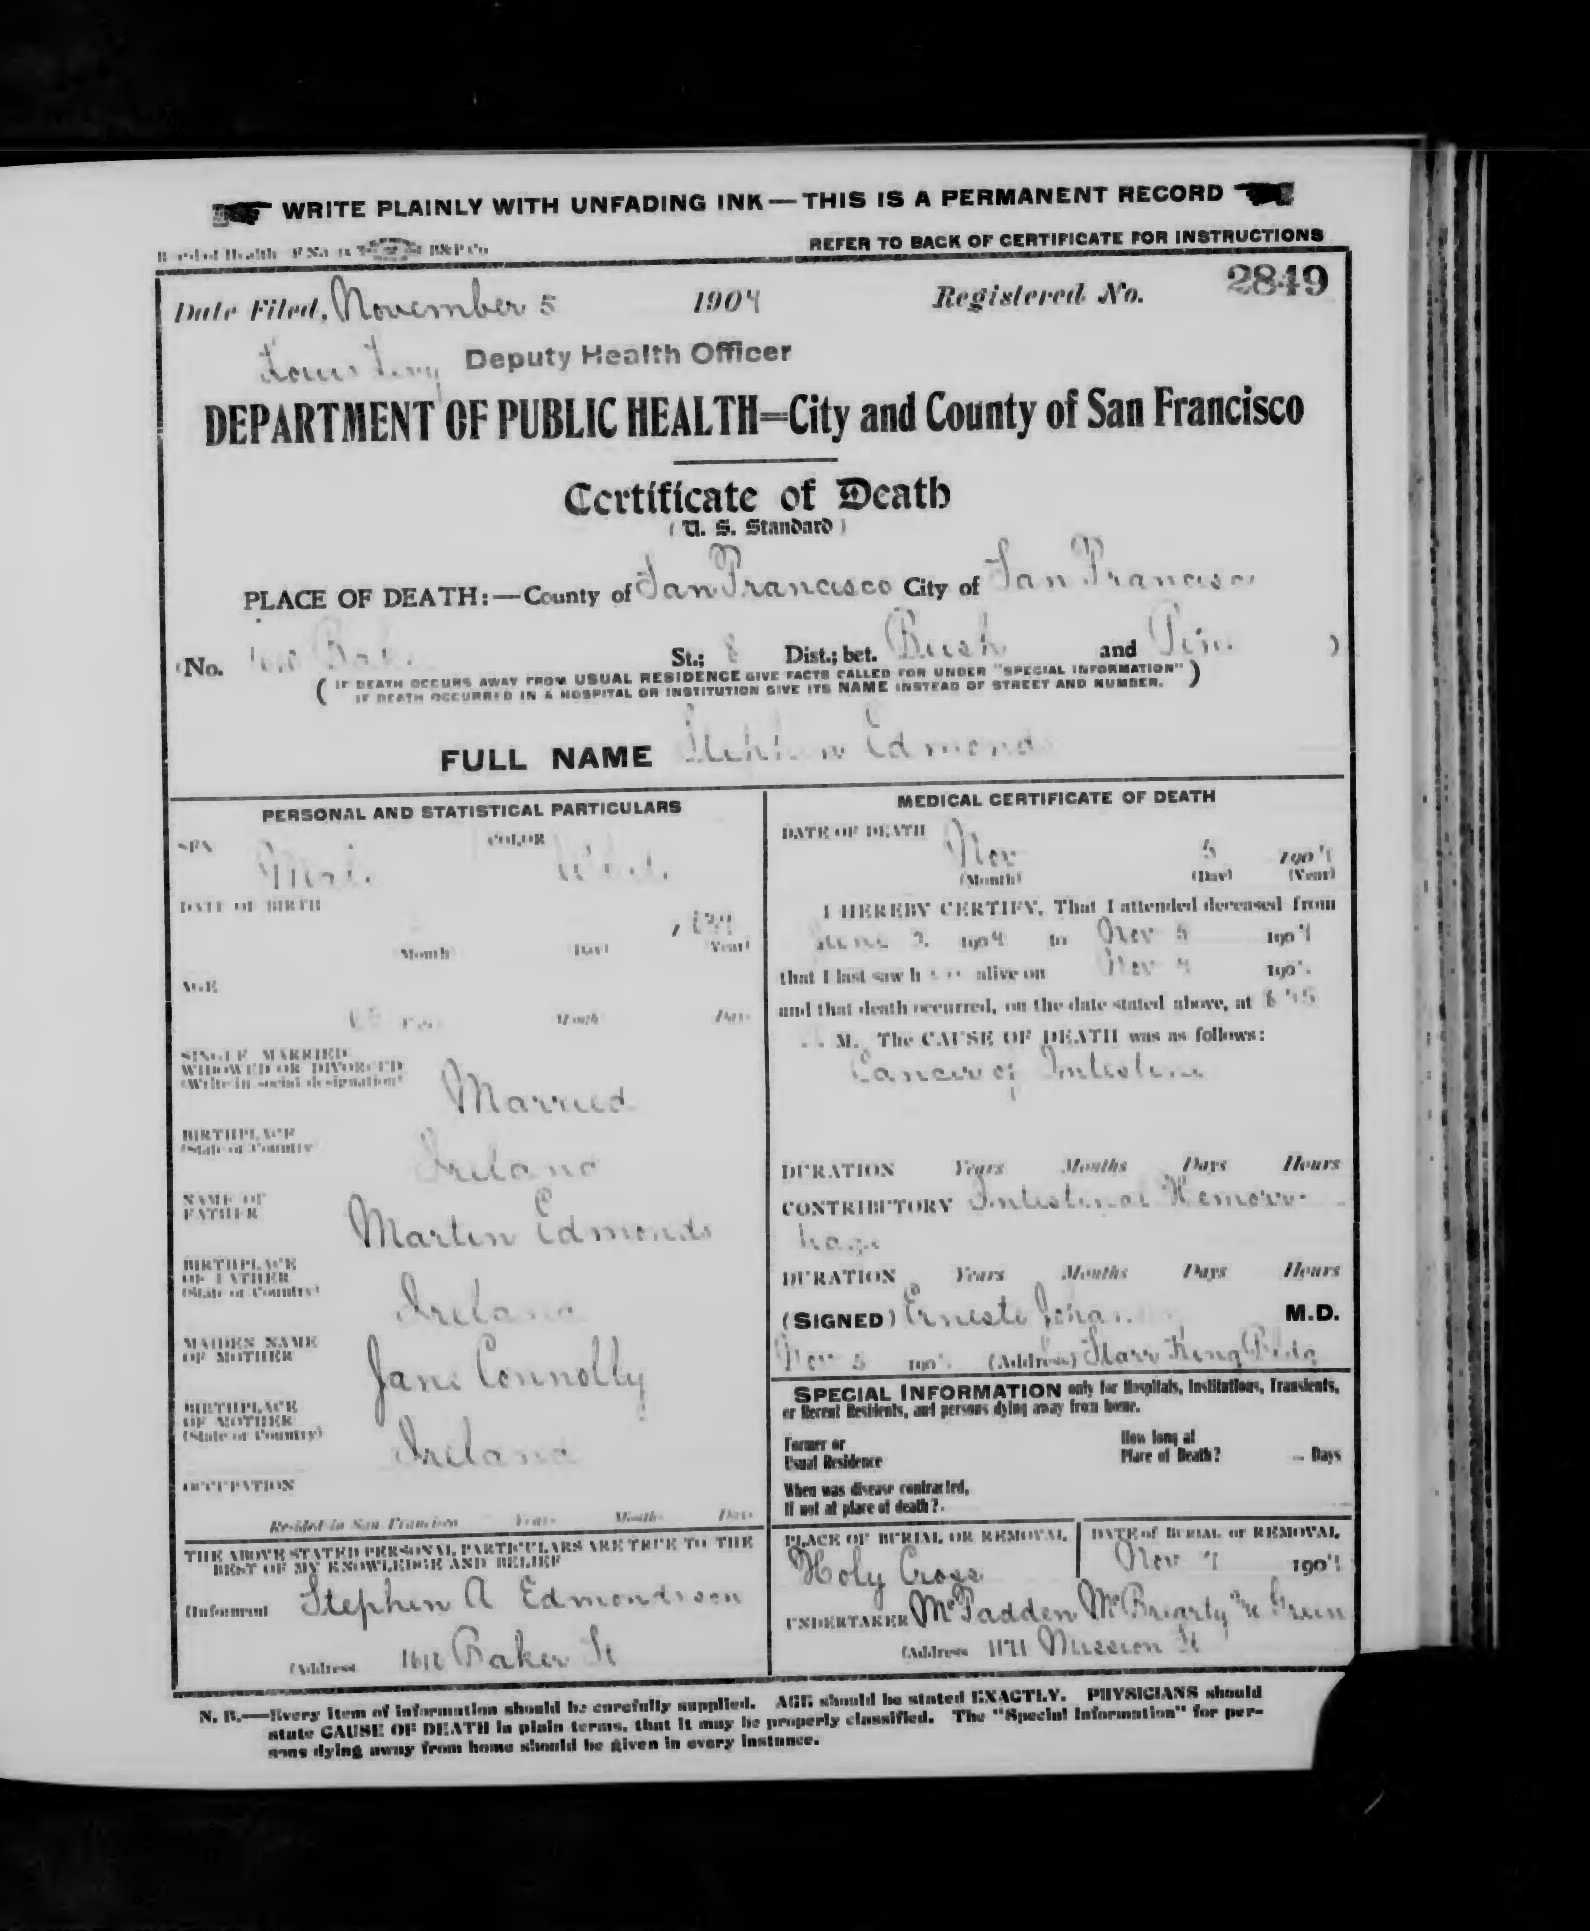 WRITE PLAINLY WITH UNFADING INK — THIS IS A PERMANENT RECORD
Board of Health B&P Co
REFER TO BACK OF CERTIFICATE FOR INSTRUCTIONS
Date Filed, November 5 1904 Registered No. 2849
Louis Levy Deputy Health Officer
DEPARTMENT OF PUBLIC HEALTH=City and County of San Francisco
Certificate of Death
(U. S. Standard)
PLACE OF DEATH:—County of San Francisco City of San Francisco
(No. Baker St.; 8 Dist.; bet. Bush and Pine )
( IF DEATH OCCURS AWAY FROM USUAL RESIDENCE GIVE FACTS CALLED FOR UNDER "SPECIAL INFORMATION" )
IF DEATH OCCURRED IN A HOSPITAL OR INSTITUTION GIVE ITS NAME INSTEAD OF STREET AND NUMBER.
FULL NAME Stephen Edmonds
PERSONAL AND STATISTICAL PARTICULARS
SEX COLOR
Male White
DATE OF BIRTH
Month Day Year
AGE
Months Days
SINGLE MARRIED
WIDOWED OR DIVORCED
(Write in social designation)
Married
BIRTHPLACE
(State or Country)
Ireland
NAME OF
FATHER
Martin Edmonds
BIRTHPLACE
OF FATHER
(State or Country)
Ireland
MAIDEN NAME
OF MOTHER
Jane Connolly
BIRTHPLACE
OF MOTHER
(State or Country)
Ireland
OCCUPATION
Resided in San Francisco Years Months Days
THE ABOVE STATED PERSONAL PARTICULARS ARE TRUE TO THE
BEST OF MY KNOWLEDGE AND BELIEF
(Informant Stephen A Edmondson
(Address Baker St
MEDICAL CERTIFICATE OF DEATH
DATE OF DEATH
Nov 5 1904
(Month) (Day) (Year)
I HEREBY CERTIFY, That I attended deceased from
June 2 1904 to Nov 5 1904
that I last saw h alive on Nov 4 190
and that death occurred, on the date stated above, at
M. The CAUSE OF DEATH was as follows:
Cancer of Intestine
DURATION Years Months Days Hours
CONTRIBUTORY Intestinal Hemorr-
hage
DURATION Years Months Days Hours
(SIGNED) M.D.
Nov 5 190 (Address) Starr King Bldg
SPECIAL INFORMATION only for Hospitals, Institutions, Transients,
or Recent Residents, and persons dying away from home.
Former or
Usual Residence
How long at
Place of Death? Days
When was disease contracted,
If not at place of death?
PLACE OF BURIAL OR REMOVAL
Holy Cross
DATE of BURIAL or REMOVAL
Nov 7 1904
UNDERTAKER McFadden McBrearty & Green
(Address 1171 Mission St
N. B.—Every item of information should be carefully supplied. AGE should be stated EXACTLY. PHYSICIANS should
state CAUSE OF DEATH in plain terms, that it may be properly classified. The "Special Information" for per-
sons dying away from home should be given in every instance.